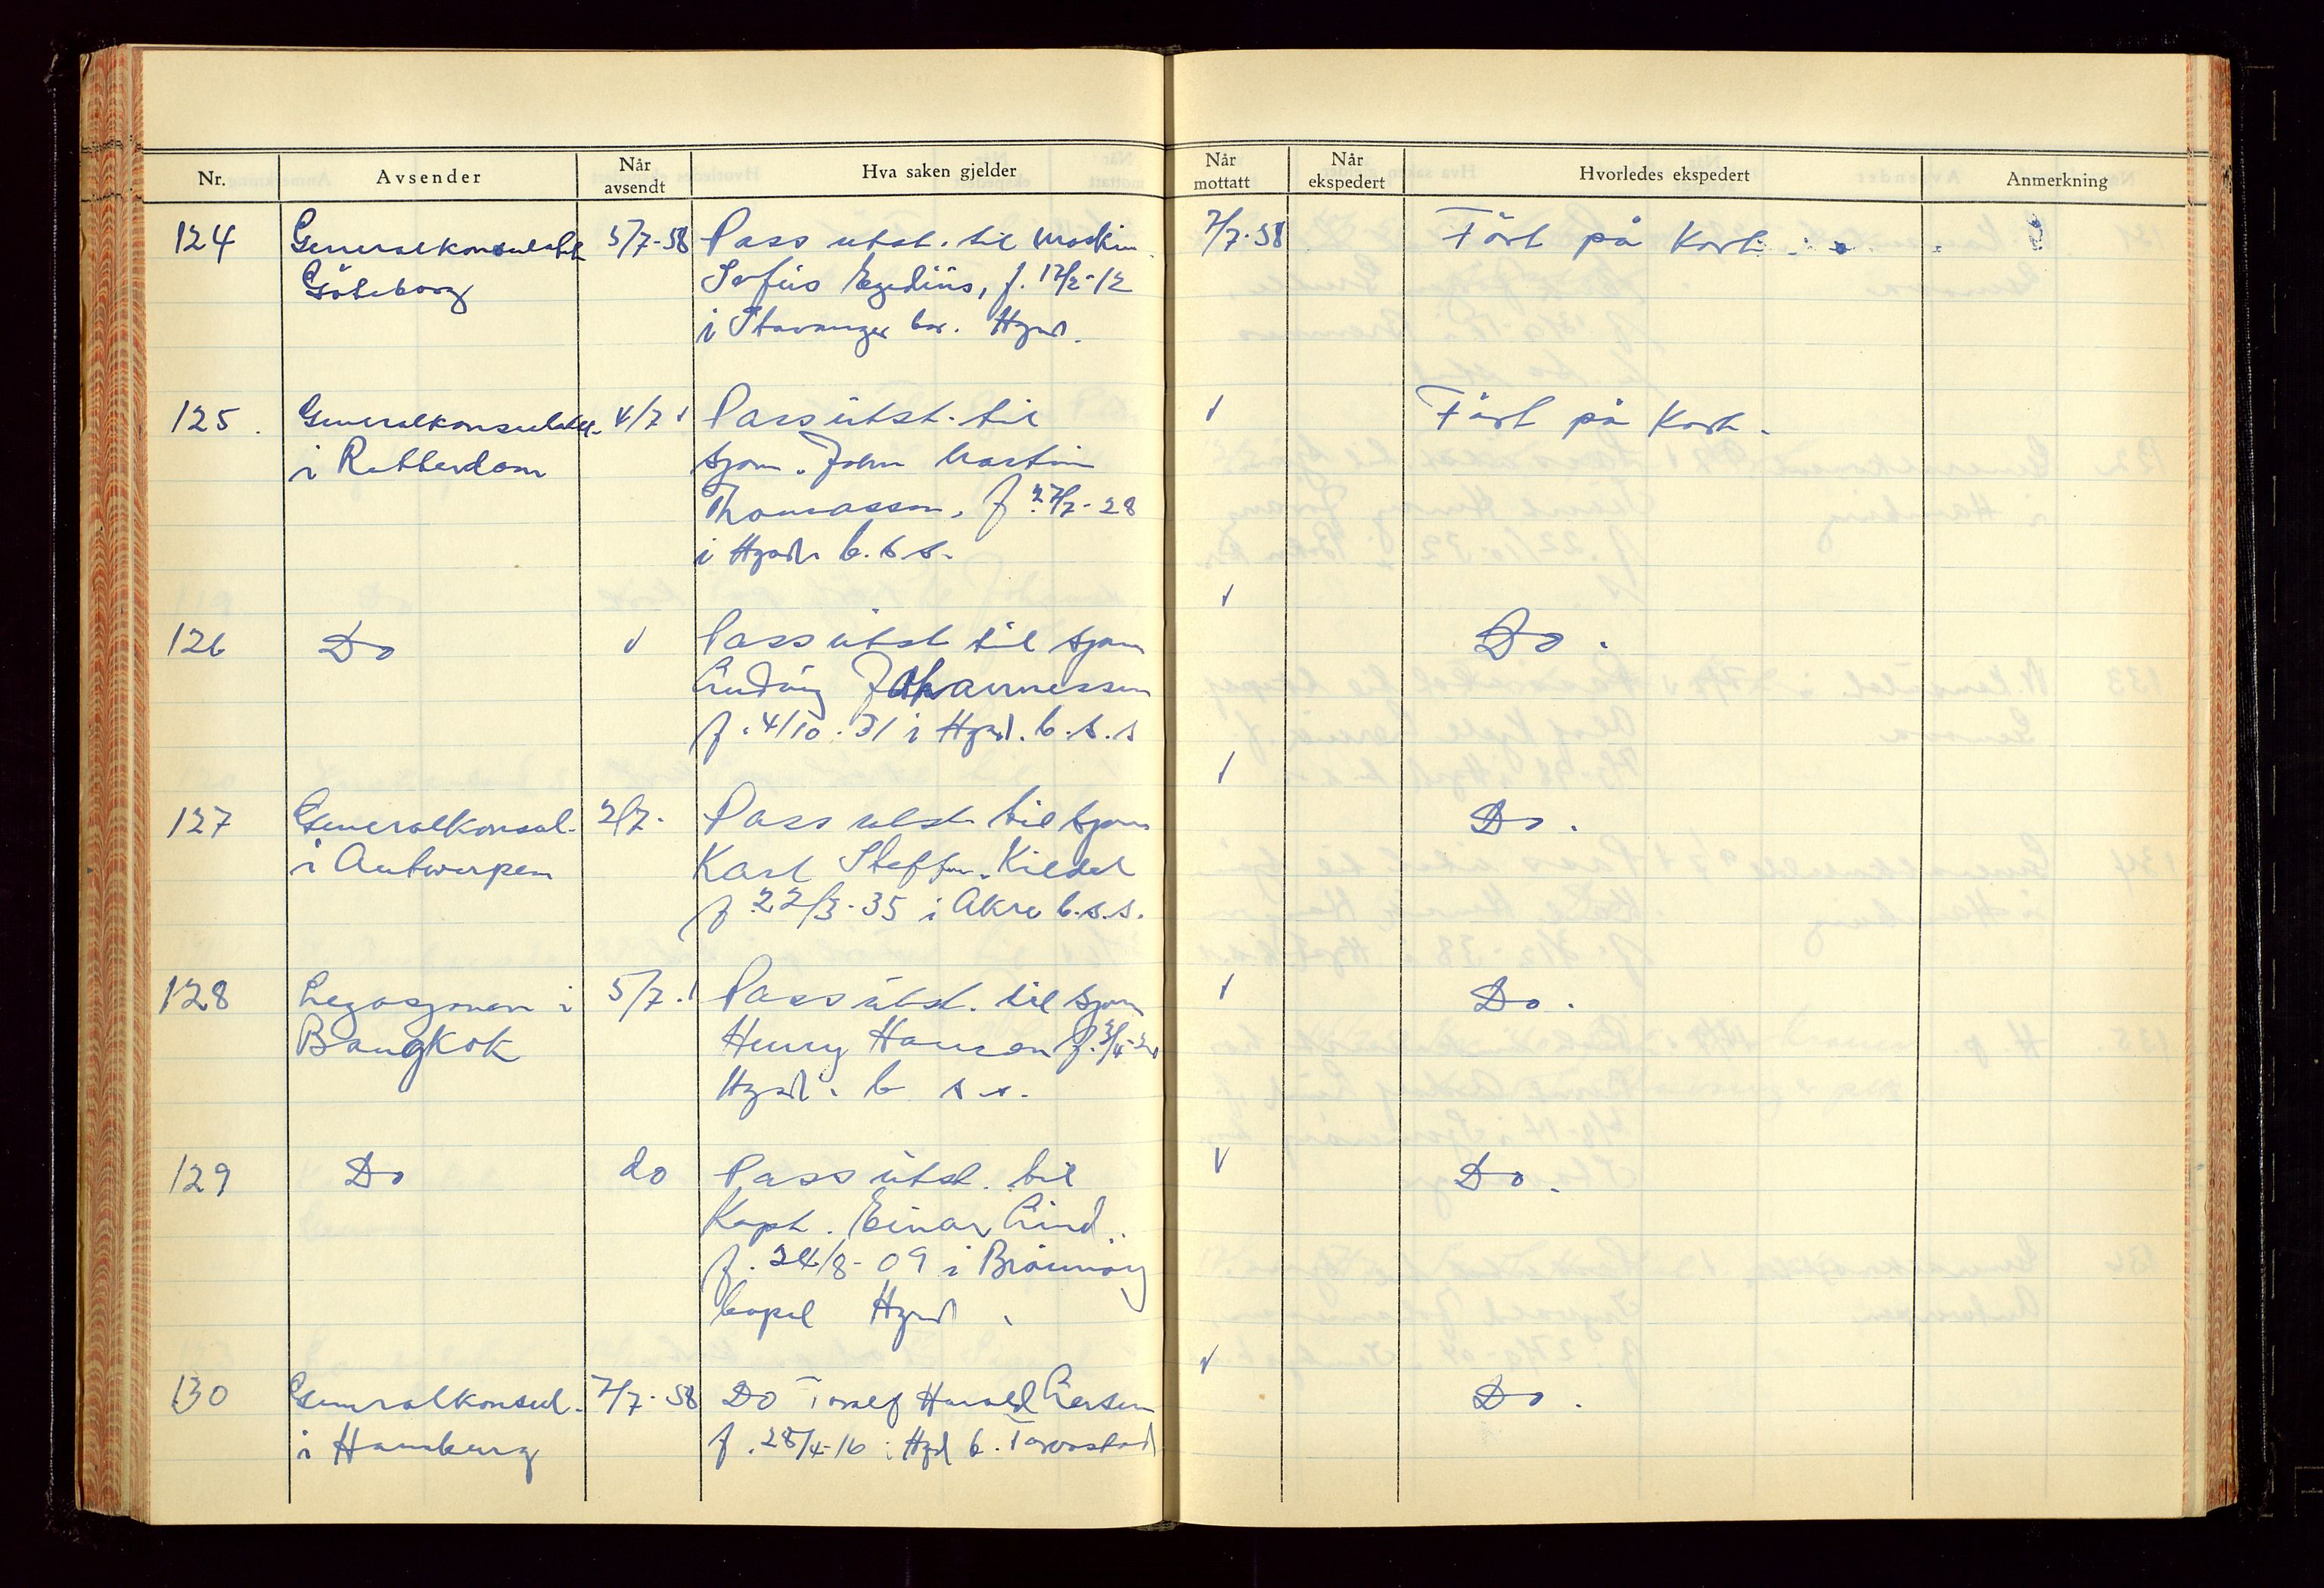 Nr. Avsender Når avsendt Hva saken gjelder Når mottatt Når ekspedert Hvorledes ekspedert Anmerkning
124 Generalkonsulatet 5/7-58 Pass utst. til Maskin 7/7-58 Ført på Kort.
Göteborg Sofus Egediüs, f. 17/2-12
i Stavanger bor. Hgsd.
125. Generalkonsulatet 4/7 √ Pass utst. til √ Ført på Kort.
i Rotterdam sjøm. John Martin
Thomassen, f 27/7-28
i Hgsd. b.s.s.
√
126 Do √ Pass utst til sjøm Do.
Ludvig Johannessen
f. 4/10.31 i Hgsd. b.s.s
√
127 Generalkonsul. 2/7. Pass utst til sjøm Do.
i Antwerpen Karl Steffen Kildal
f 22/3-35 i Åkra b.s.s.
128 Legasjonen i 5/7. √ Pass utst. til sjøm √ Do.
Bangkok Henry Hansen f.
Hgsd. b s s.
129 Do do Pass utst. til √ Do.
Kapt. Einar Lind
f. 24/8-09 i Brønnøy
bopel Hgsd.
√
130 Generalkonsul. 7/7-58 Do Toralf Harald Larsen Do.
i Hamburg f. 28/4-16 i Hgsd b. Torvastad